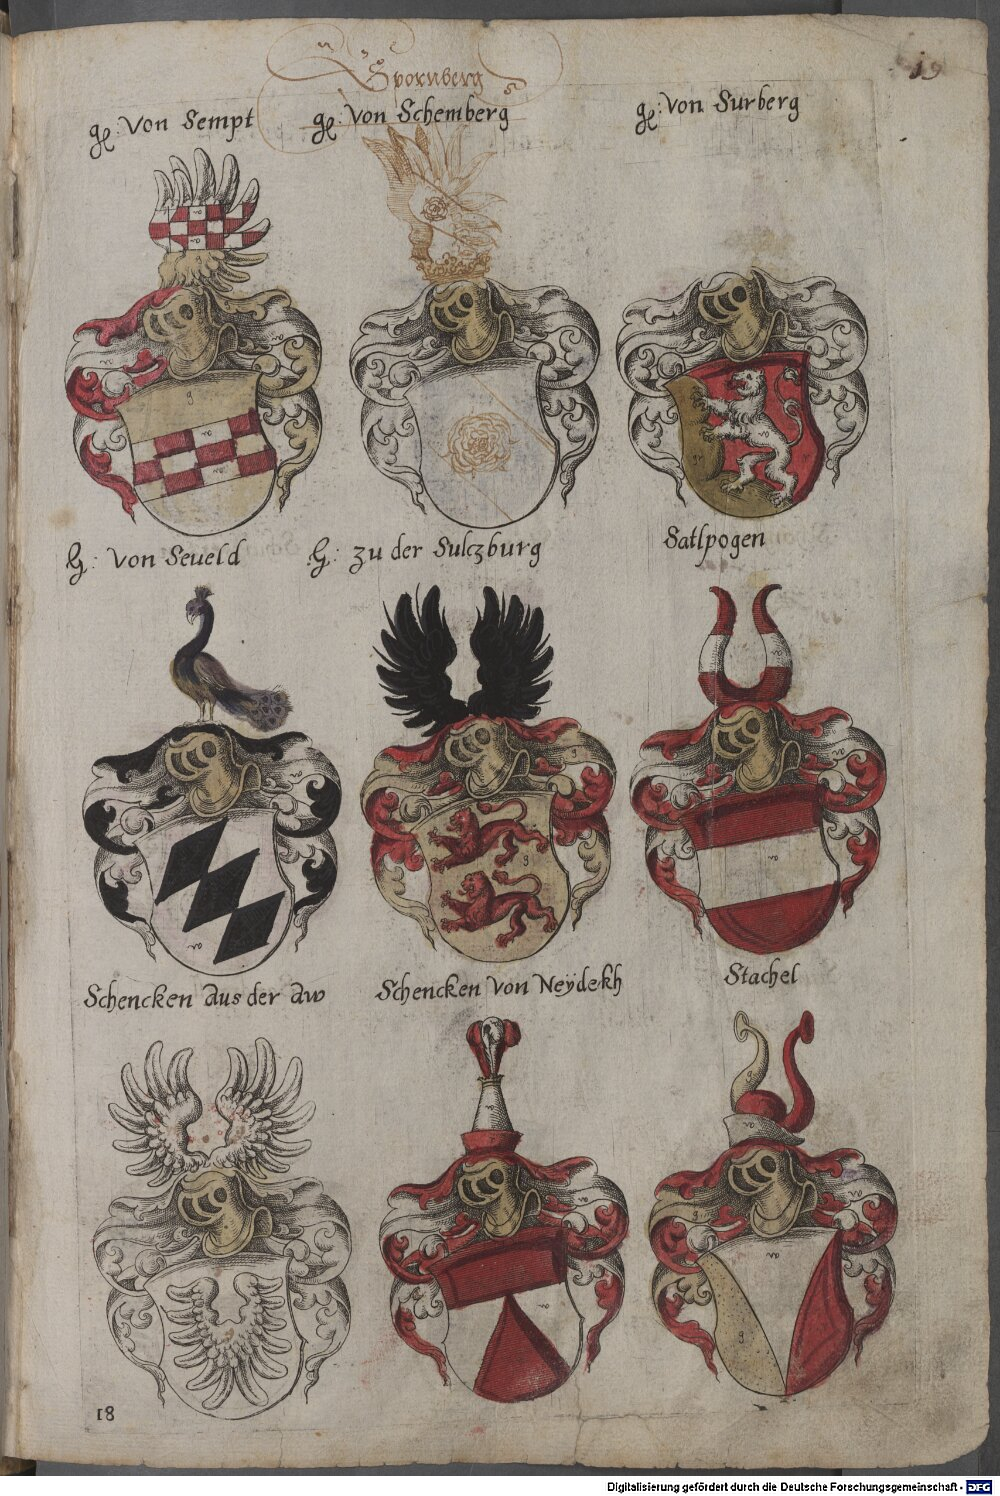 19
Spornberg
gē: Von Sempt
gē: Von Schemberg
gē: Von Surberg
H: Von Seueld
H: zu der Sulczburg
Satlpogen
Schencken aus der aw
Schencken Von Neÿdekh
Stachel
18
Digitalisierung gefördert durch die Deutsche Forschungsgemeinschaft - DFG